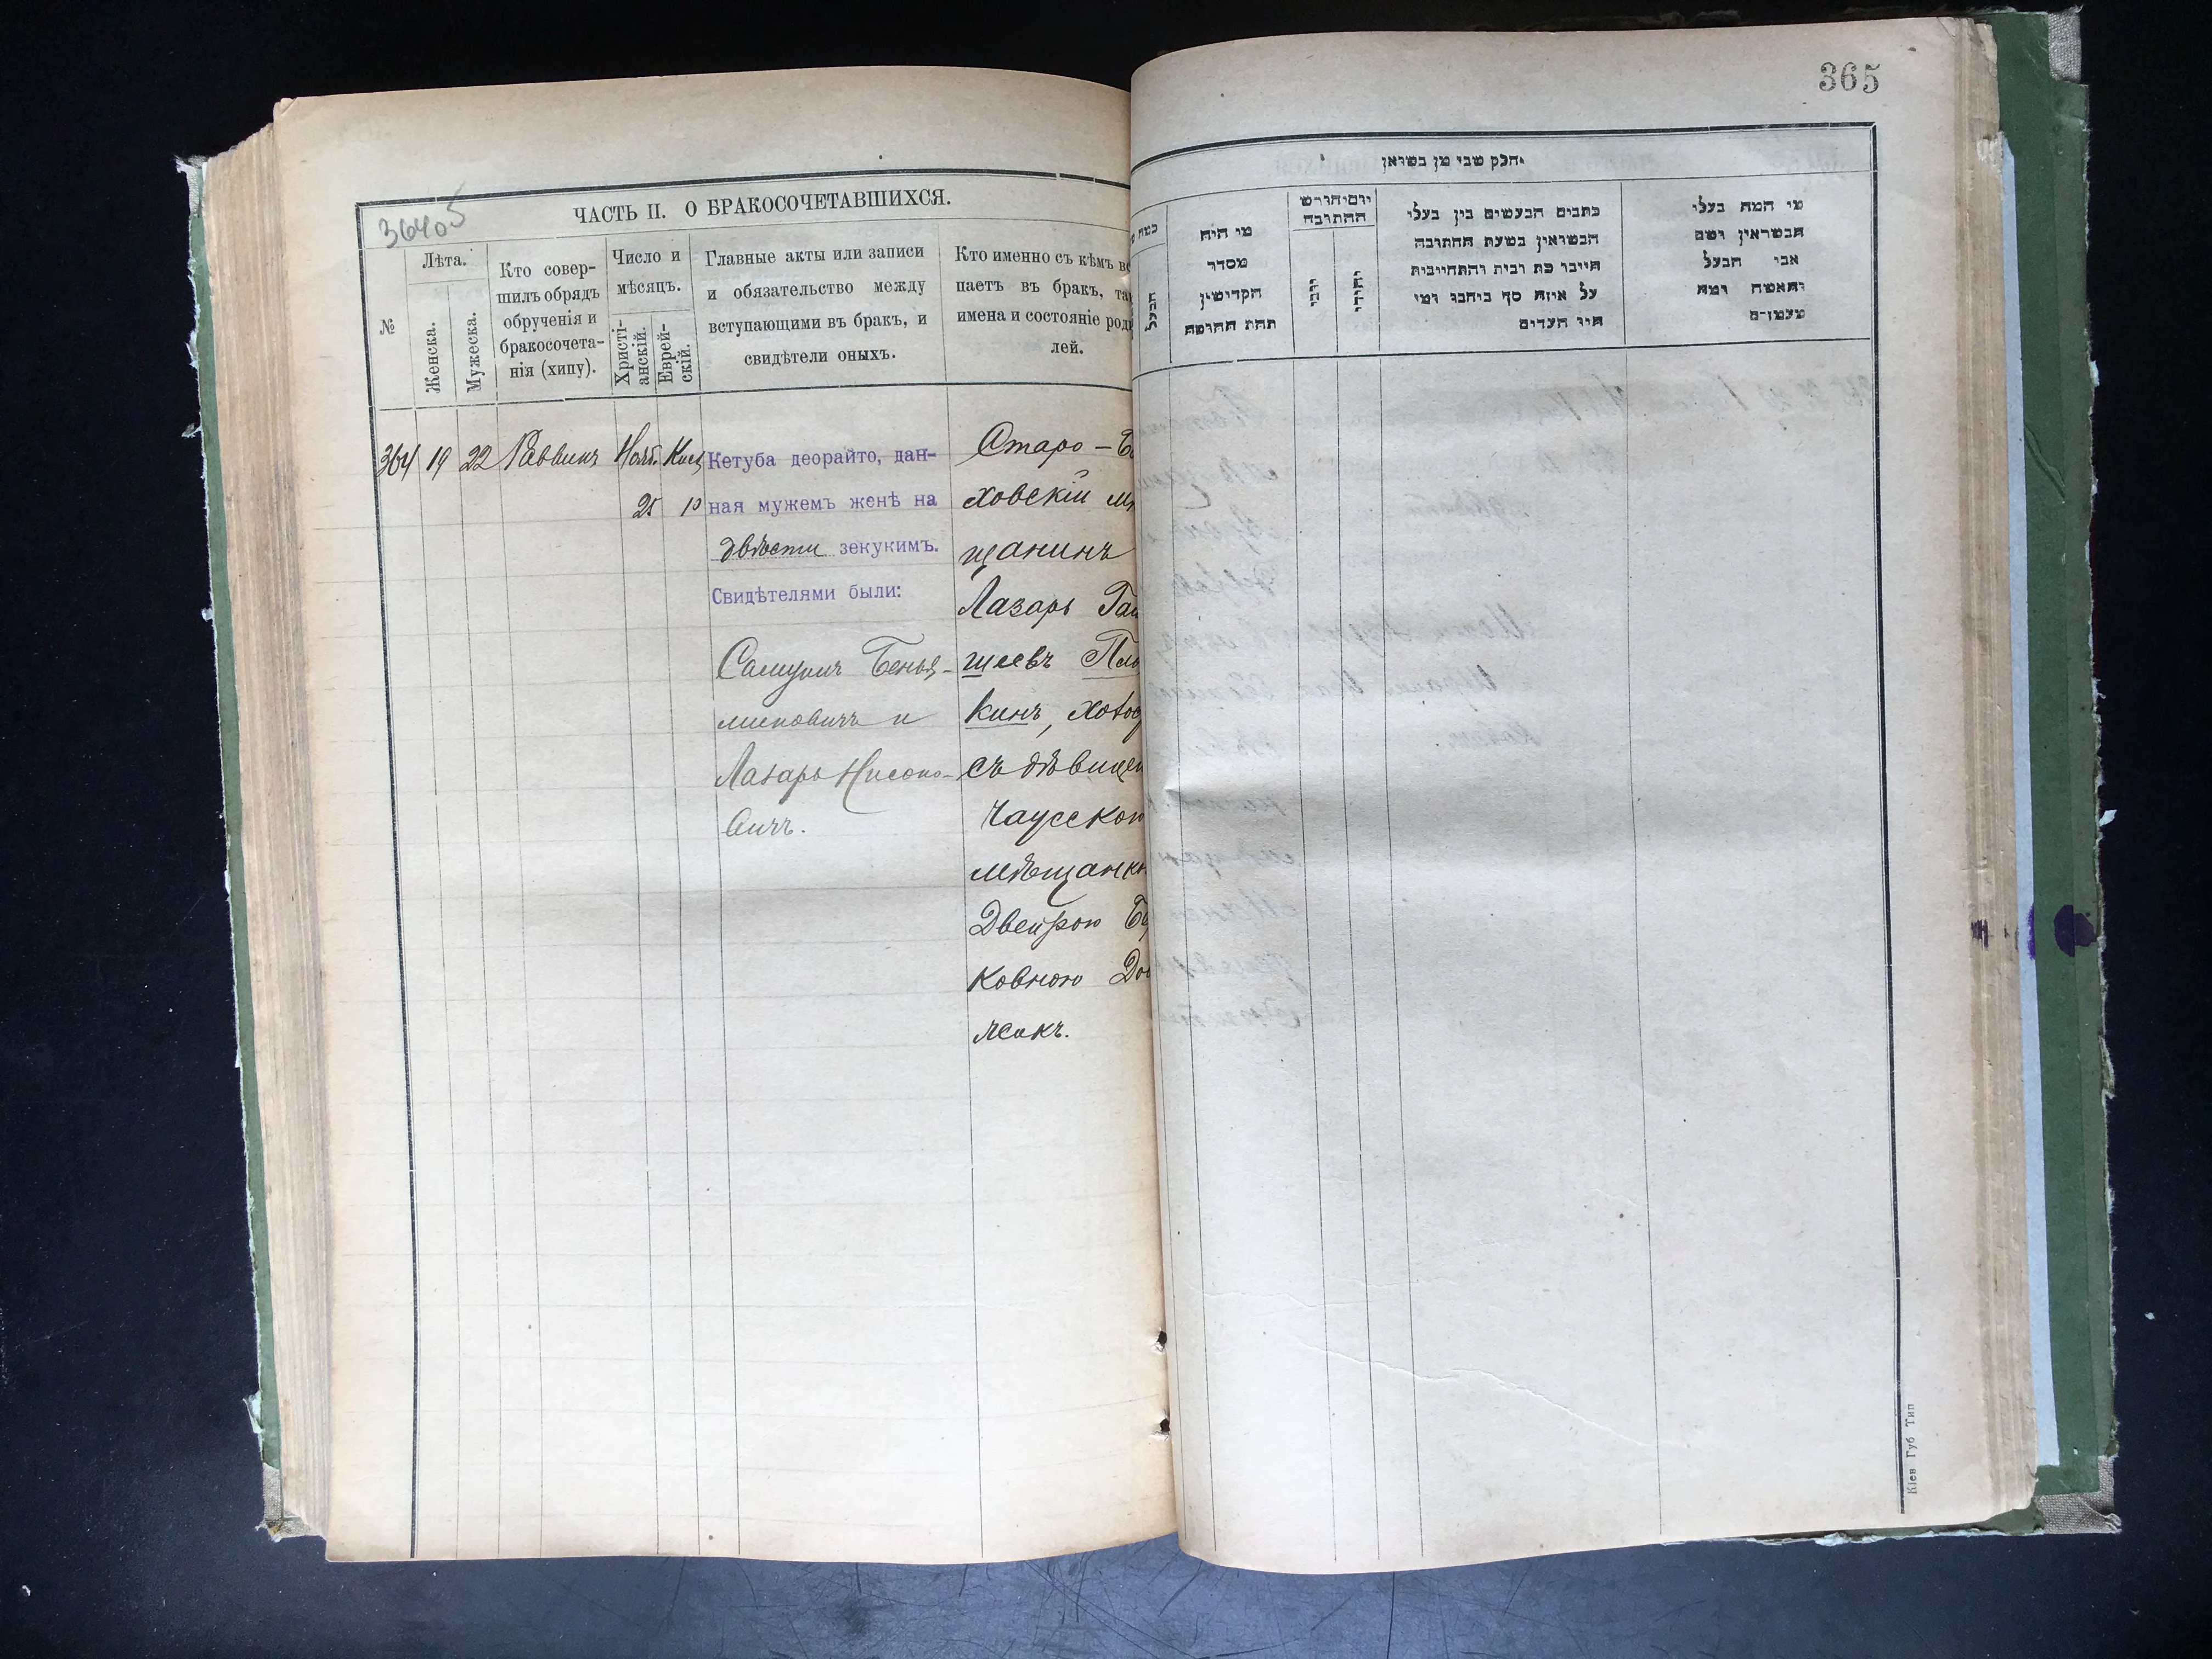 36405
ЧАСТЬ II. О БРАКОСОЧЕТАВШИХСЯ.
№
Лѣта.
Женска.
Мужеска.
Кто совер-
шилъ обрядъ
обрученія и
бракосочета-
нія (хипу).
Число и
мѣсяцъ.
Христі-
анскій.
Еврей-
скій.
Главные акты или записи
и обязательство между
вступающими въ бракъ, и
свидѣтели оныхъ.
Кто именно съ кѣмъ вс
паетъ въ бракъ, так
имена и состояніе роди
лей.
364 19 22 Раввинъ Нояб. Кисл
25 10
Кетуба деорайто, дан-
ная мужемъ женѣ на
двѣсти зекукимъ.
Свидѣтелями были:
Самуилъ Бенья-
миновичъ и
Лазарь Нисоно-
вичъ.
Старо-
ховскій мѣ
щанинъ
Лазарь
шеевъ
кинъ, холос
съ дѣвицею
Чаусскою
мѣщанко
Двейрою
ковною
жокъ.
365
חלק שני מן נשואין
מי היה
מסדר
הקדישין
תחת החופה
יום וחודש
החתונה
הבעל
כתבים הנעשים בין בעלי
הנשואין בשעת החתונה
חייבו כח ובית והתחייבות
על איזה סך ביחבו ומי
היו העדים
מי המה בעלי
הנשואין ושם
אבי הבעל
והאשה ומה
מעמדם
Кіев Губ Тип